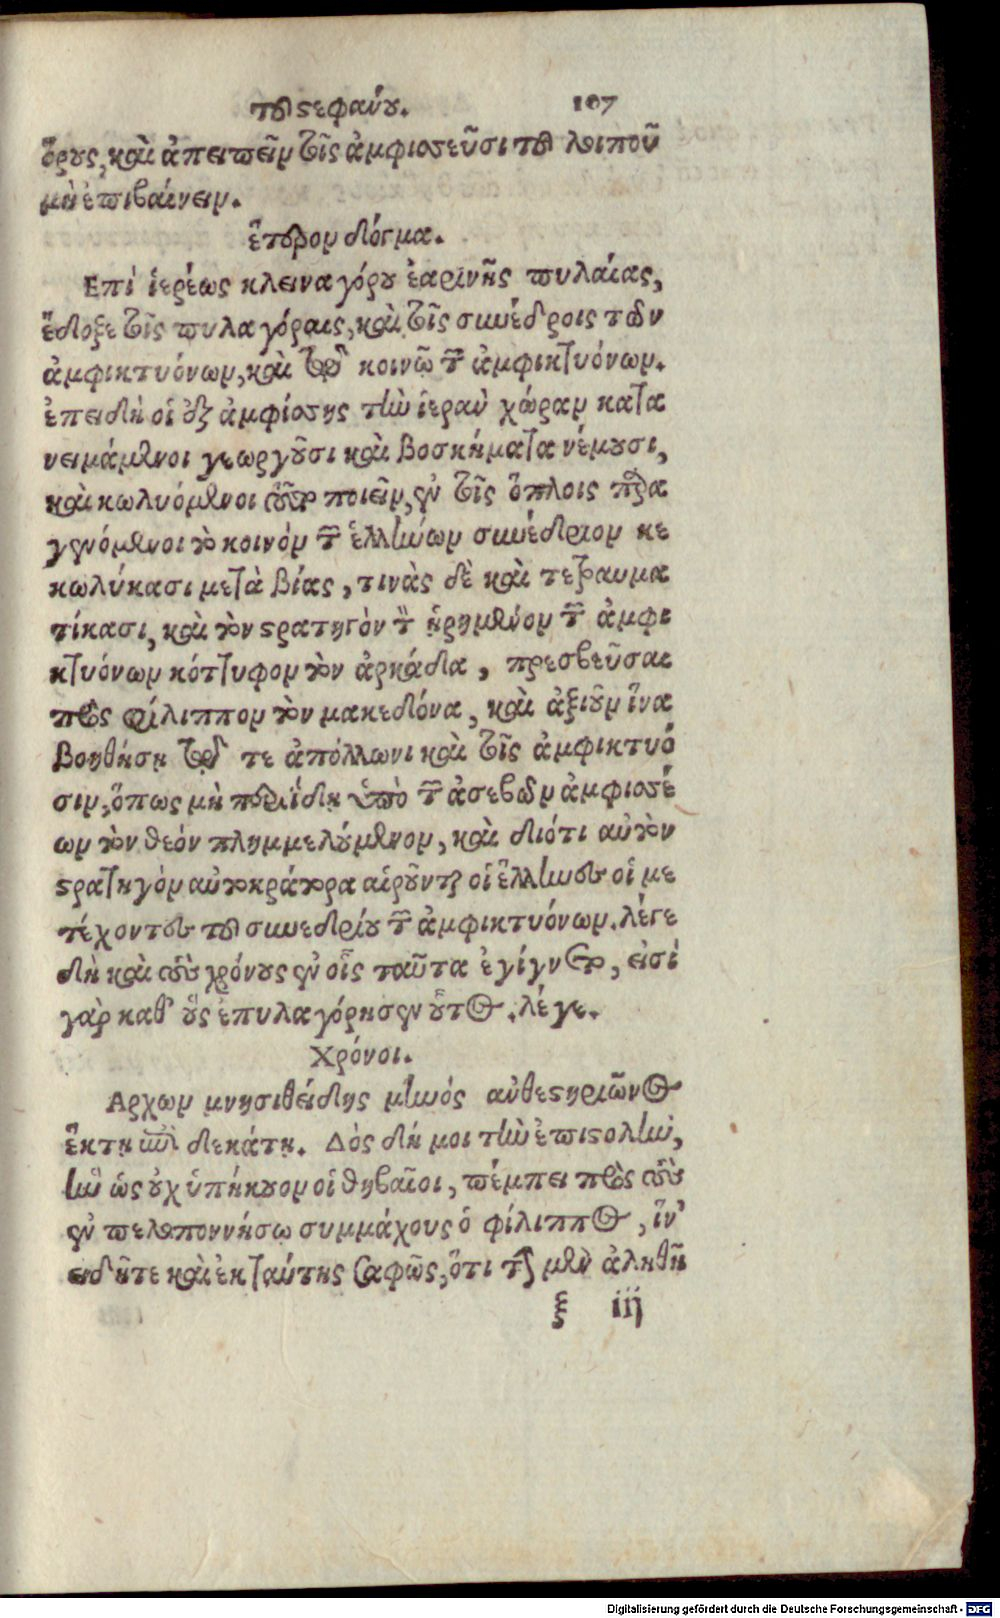 τοῦ στεφάνου. 107
ὅρους, καὶ ἀπειπεῖν τοῖς ἀμφισσεῦσι τοῦ λοιποῦ
μὴ ἐπιβαίνειν.
ἕτερον δόγμα.
Επὶ ἱερέως κλειναγόρου ἐαρινῆς πυλαίας,
ἔδοξε τοῖς πυλαγόραις, καὶ τοῖς συνέδροις τῶν
ἀμφικτυόνων, καὶ τῷ κοινῷ τῶν ἀμφικτυόνων.
ἐπειδὴ οἱ ἐξ ἀμφίσσης τὴν ἱερὰν χώραν κατα
νειμάμενοι γεωργοῦσι καὶ βοσκήματα νέμουσι,
καὶ κωλυόμενοι τοῦτο ποιεῖν, ἐν τοῖς ὅπλοις παρα
γενόμενοι τὸ κοινὸν τῶν ἑλλήνων συνέδριον κε
κωλύκασι μετὰ βίας, τινὰς δὲ καὶ τετραυμα
τίκασι, καὶ τὸν στρατηγὸν τὸν ᾑρημένον τῶν ἀμφι
κτυόνων κόττυφον τὸν ἀρκάδα, πρεσβεῦσαι
πρὸς φίλιππον τὸν μακεδόνα, καὶ ἀξιοῦν ἵνα
βοηθήσῃ τῷ τε ἀπόλλωνι καὶ τοῖς ἀμφικτυό
σιν, ὅπως μὴ περιΐδῃ ὑπὸ τῶν ἀσεβῶν ἀμφισσέ
ων τὸν θεὸν πλημμελούμενον, καὶ διότι αὐτὸν
στρατηγὸν αὐτοκράτορα αἱροῦνται οἱ ἕλληνες οἱ με
τέχοντες τοῦ συνεδρίου τῶν ἀμφικτυόνων. λέγε
δὴ καὶ τοὺς χρόνους ἐν οἷς ταῦτα ἐγίγνετο, εἰσὶ
γὰρ καθ' οὓς ἐπυλαγόρησεν οὗτος. λέγε.
Χρόνοι.
Αρχων μνησιθείδης μηνὸς ἀνθεστηριῶνος
ἕκτῃ ἐπὶ δεκάτῃ. Δὸς δή μοι τὴν ἐπιστολὴν,
ἣν ὡς οὐχ ὑπήκουον οἱ θηβαῖοι, πέμπει πρὸς τοὺς
ἐν πελοποννήσῳ συμμάχους ὁ φίλιππος, ἵν'
εἰδῆτε καὶ ἐκ ταύτης σαφῶς, ὅτι τὴν μὲν ἀληθῆ
ξ iij
Digitalisierung gefördert durch die Deutsche Forschungsgemeinschaft - DFG